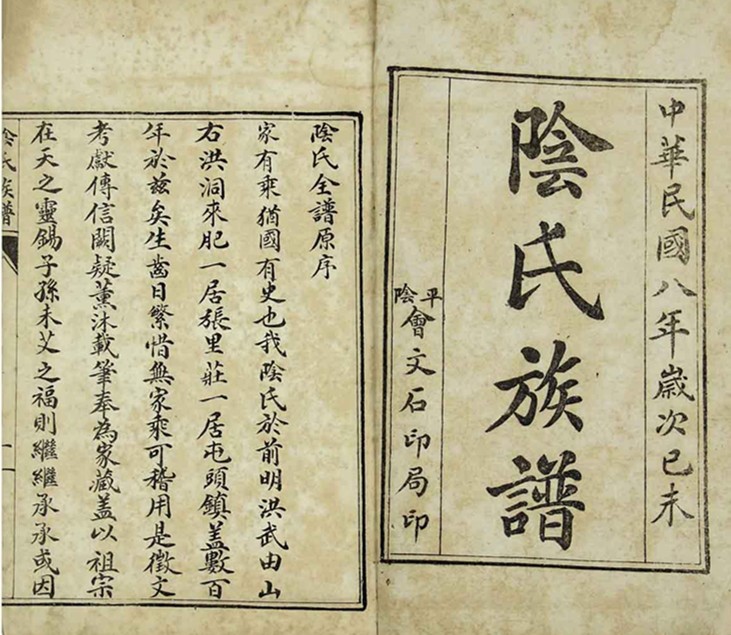 中華民國八年歲次己未
陰氏族譜
平陰會文石印局印
陰氏全譜原序
家有乘猶國有史也我陰氏於前明洪武由山
右洪洞來肥一居張里莊一居屯頭鎮蓋數百
年於茲矣生齒日繁惜無家乘可稽用是徵文
考獻傳信闕疑薰沐載筆奉為家藏蓋以祖宗
在天之靈錫子孫未艾之福則繼繼承承或因
陰氏族譜
一